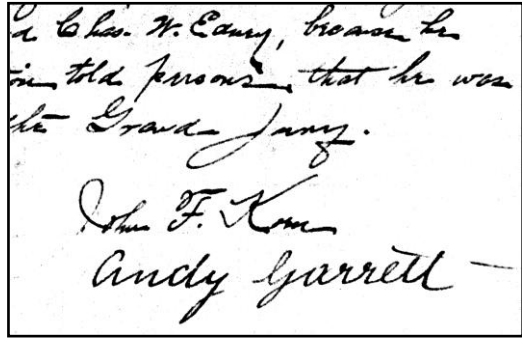 Chas. W. Edney, because he
told persons, that he was
the Grand Jury.
John F. Korn
Andy Garrett